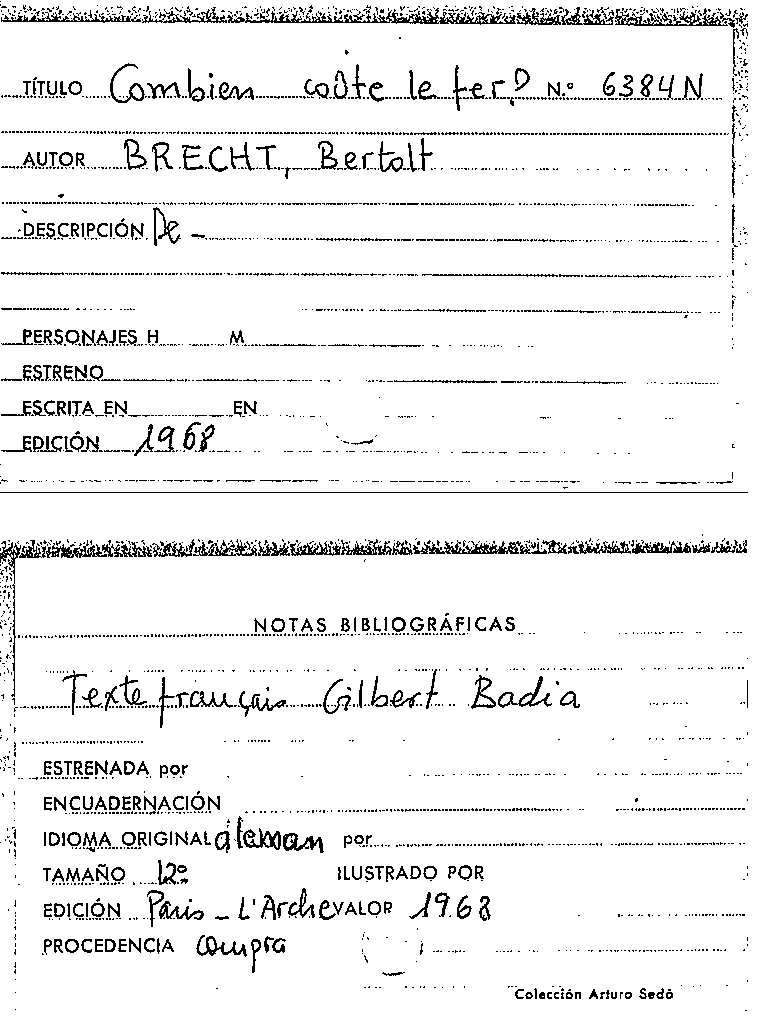 TÍTULO Combien coûte le fer? N.º 6384 N
AUTOR BRECHT, Bertolt
DESCRIPCIÓN De -
PERSONAJES H M
ESTRENO
ESCRITA EN EN
EDICIÓN 1968
NOTAS BIBLIOGRÁFICAS
Texte français Gilbert Badia
ESTRENADA por
ENCUADERNACIÓN
IDIOMA ORIGINAL aleman por
TAMAÑO 12º ILUSTRADO POR
EDICIÓN Paris - L'Arche VALOR 1968
PROCEDENCIA compra
Colección Arturo Sedó